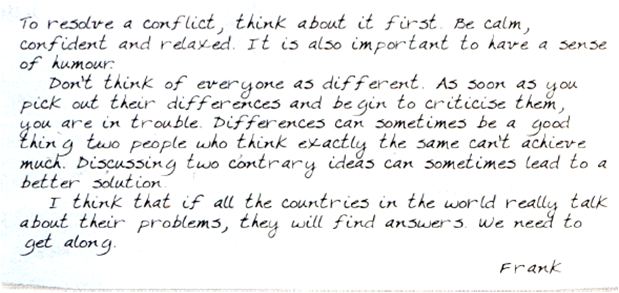 To resolve a conflict, think about it first. Be calm,
confident and relaxed. It is also important to have a sense
of humour.
Don't think of everyone as different. As soon as you
pick out their differences and begin to criticise them,
you are in trouble. Differences can sometimes be a good
thing two people who think exactly the same can't achieve
much. Discussing two contrary ideas can sometimes lead to a
better solution.
I think that if all the countries in the world really talk
about their problems, they will find answers. We need to
get along.
Frank